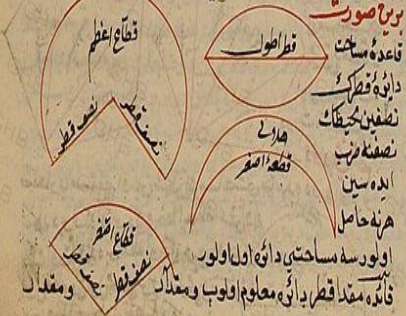 برین صورت
قاعدهٔ مساحت
دائرهٔ قطرك
نصفین محیطك
نصفنه ضرب
ایده سین
هرنه حاصل
اولورسه مساحتی دائره اول اولور
فائده مقدار قطر دائره معلوم اولوب ومقدار
ومقدار
قطاع اعظم
نصف قطر
نصف قطر
قطر اطول
هلالی
قطعهٔ اصغر
قطاع اصغر
نصف قطر
نصف قطر